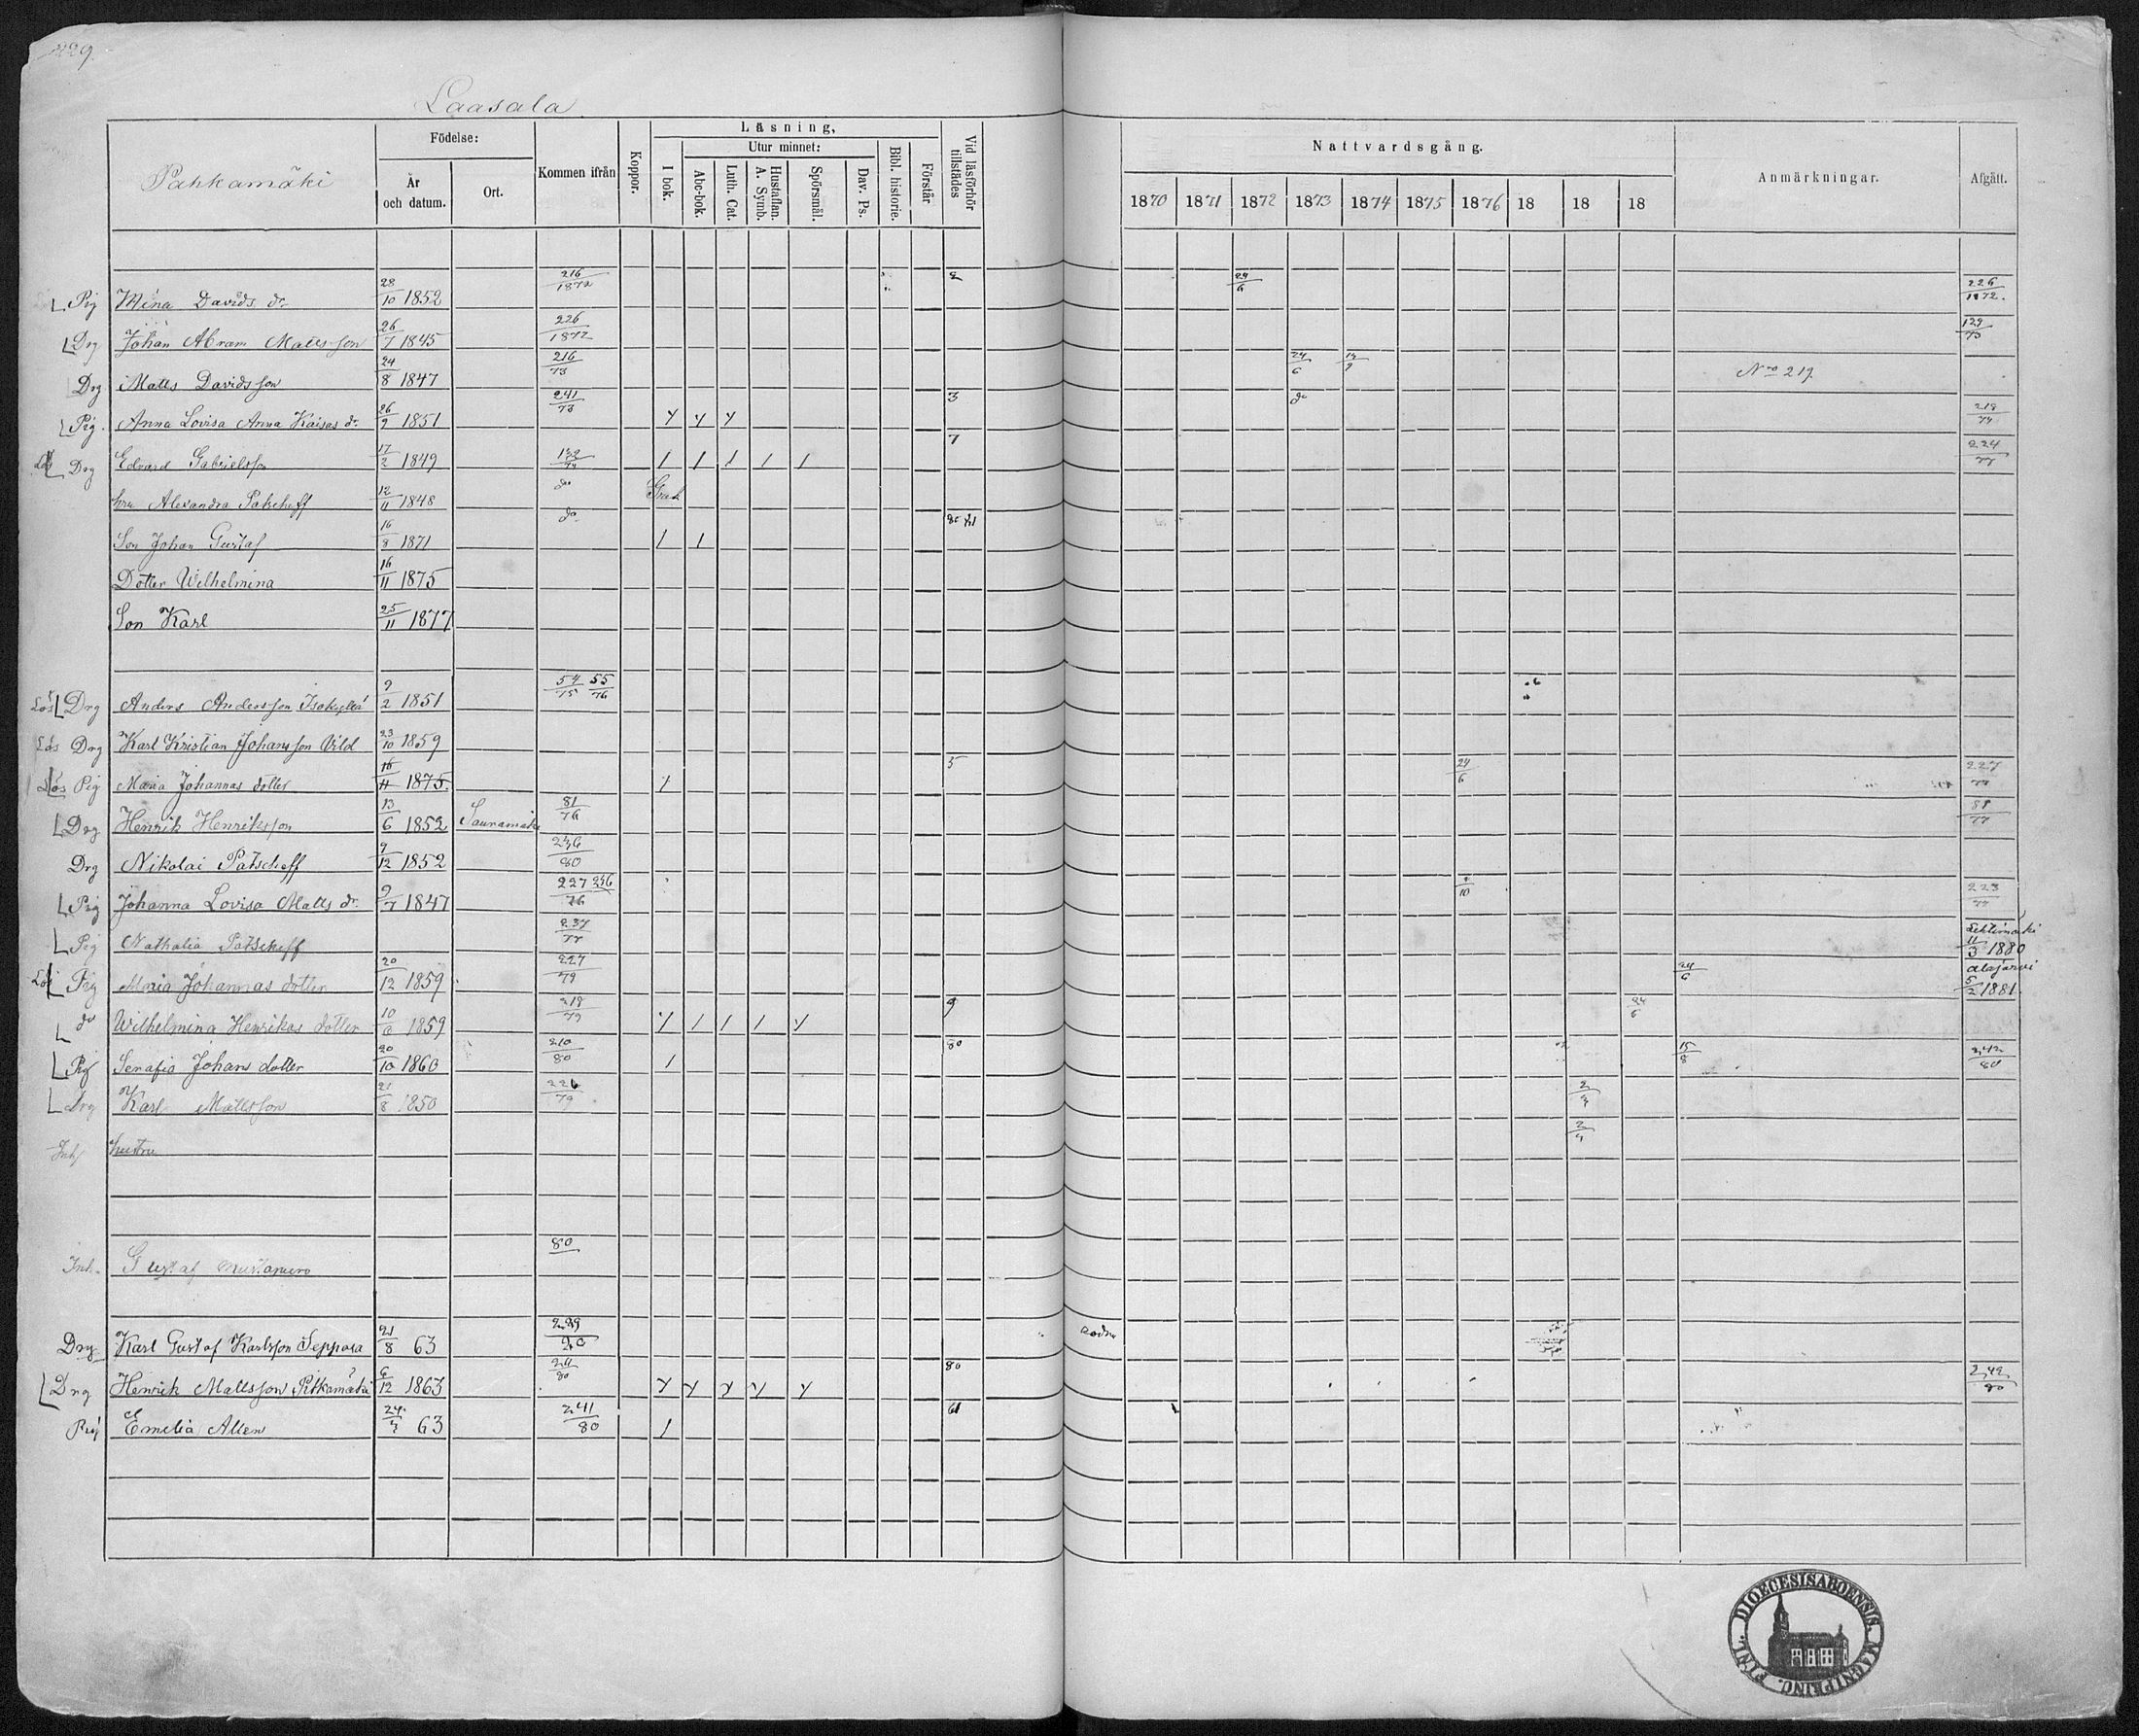 229.
Laasala
Pahkamäki
Födelse:
År och datum.
Ort.
Kommen ifrån
Koppor.
Läsning,
I bok.
Utur minnet:
Abc-bok.
Luth. Cat.
Hustaflan. A. Symb.
Spörsmål.
Dav. Ps.
Bibl. historie.
Förstår
Vid läsförhör tillstädes
Nattvardsgång.
1870 1871 1872 1873 1874 1875 1876 18 18 18
Anmärkningar.
Afgått.
Pig Mina Davids dr 28/10 1852 216/1872 2 24/6 226/1872.
Drg Johan Abram Matts son 26/7 1845 226/1872 129/73
Drg Matts Davidsson 24/8 1847 216/73 24/6 Nro 219
Pig. Anna Lovisa Anna Kaisas dr 26/9 1851 241/73 3 do 218/74
Lös Drg Edvard Gabrielsson 17/2 1849 7 224/77
hru Alexandra Patscheff 12/11 1848 do Grek
Son Johan Gustaf 16/8 1871 do 80 81
Dotter Wilhelmina 16/11 1875
Son Karl 25/11 1877
Lös Drg Anders Andersson Isokyllä 9/2 1851 54/75 55/76
Lös Drg Karl Kristian Johansson Vild 23/10 1859
Lös Pig Maria Johannas dotter 16/11 1875. 5 24/6 227/79
Drg Henrik Henriksson 13/6 1852 Saunamäki 81/76 88/77
Drg Nikolai Patscheff 9/12 1852 236/80
Pig Johanna Lovisa Matts dr 9/7 1847 227/76 236 223/77
Pig Nathalia Patscheff 237/77 Lehtimäki 11/3 1880
Lös Pig Maria Johannas dotter 20/12 1859 227/79 24/6 Alajärvi 5/2 1881.
do Wilhelmina Henrikas dotter 10/6 1859 218/79 9 24/6
Pig Serafia Johans dotter 20/10 1860 210/80 80 15/8 242/80
Drg Karl Mattsson 21/8 1850 226/79
Inh hustru
Inh. Gustaf Mustapuro 80
Drg Karl Gustaf Karlsson Seppala 21/8 63
Drg Henrik Mattsson Pitkamäki 6/12 1863 80 242/80
Pig Emelia Allen 63 241/80 61
FINL. DIOECESIS ABOENSIS MAGNI PRINC.